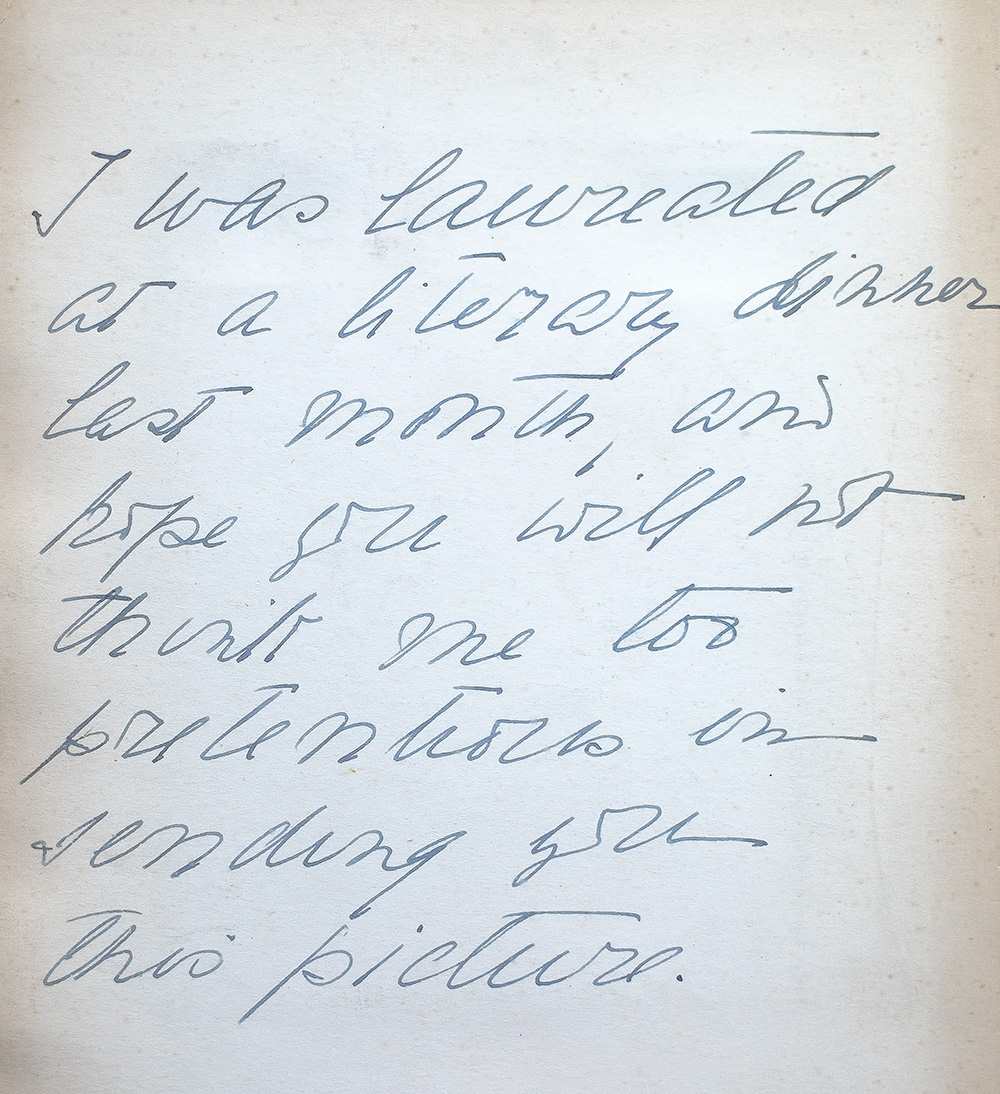 I was laureated
at a literary dinner
last month, and
hope you will not
think me too
pretentious in
sending you
this picture.